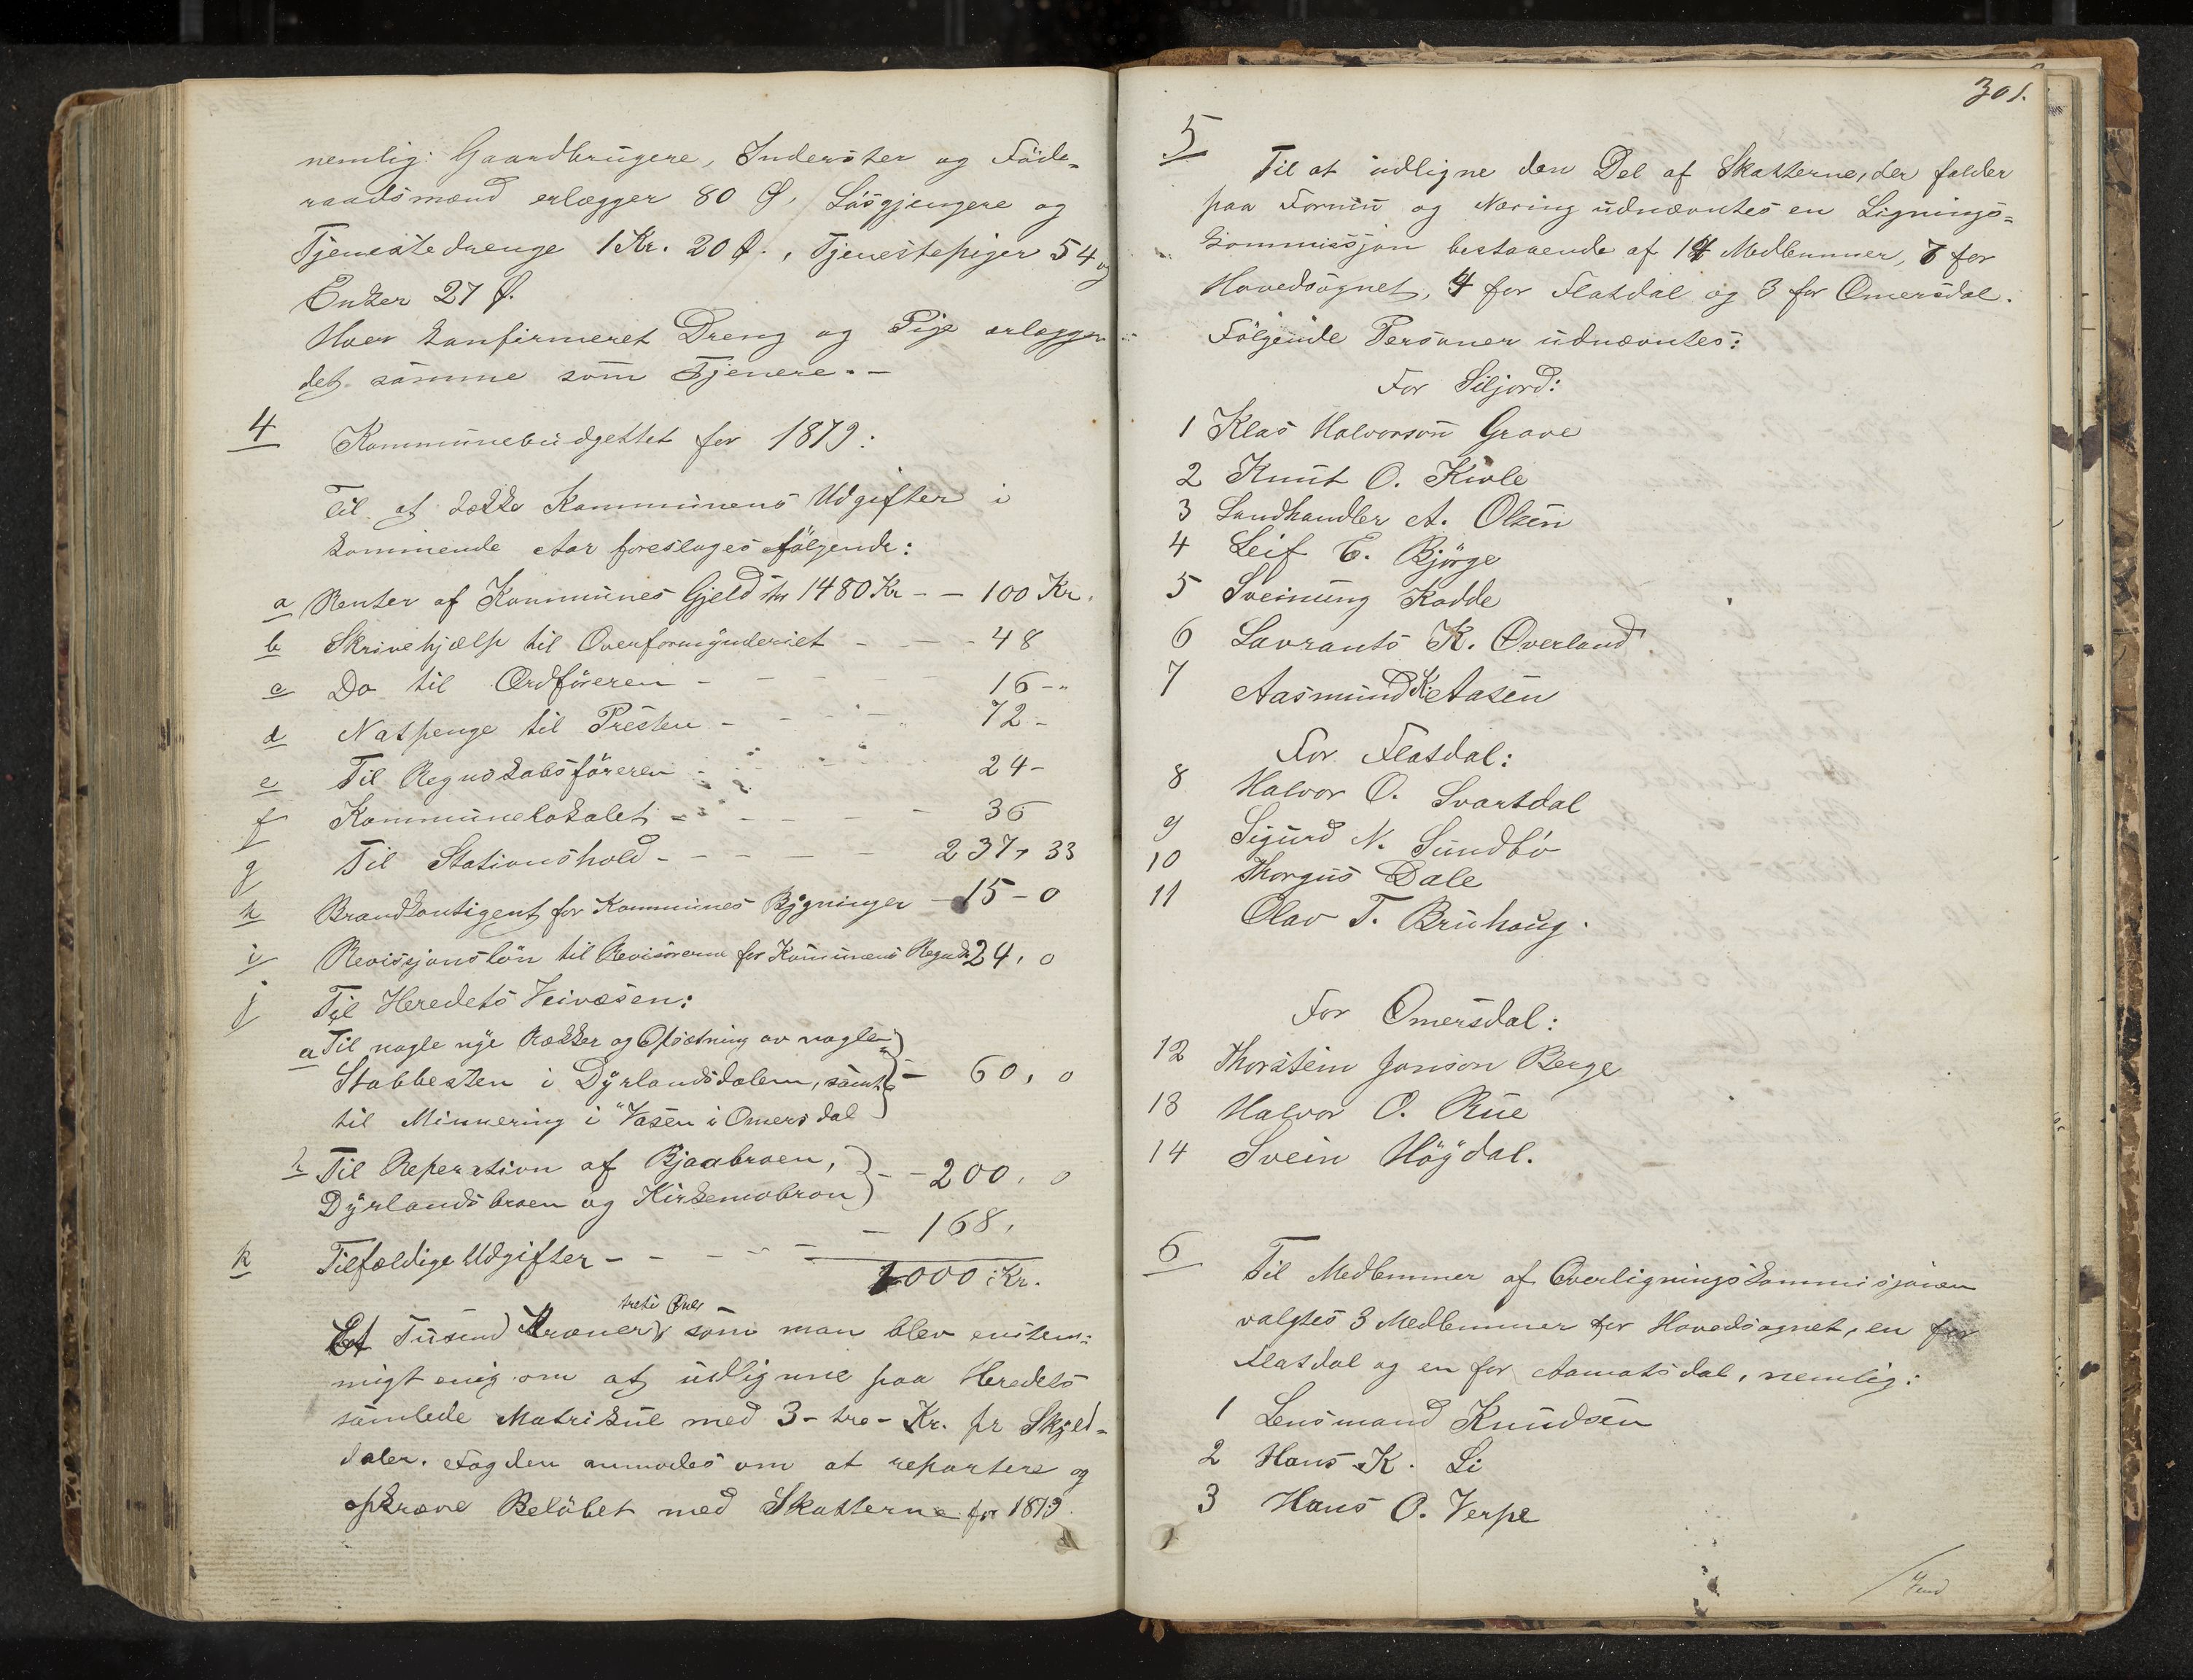 nemlig: Gaardbrugere, Inderster og Føde-
raadsmænd erlægger 80 Ø, Løsgjengere og
Tjenestedrenge 1 Kr. 20 Ø., Tjenestepiger 54 og
Enker 27 Ø.
Hver konfirmeret Dreng og Pige erlægger
det samme som Tjenere. -
4
Kommunebudgettet for 1879:
Til at dække Kommunens Udgifter i
kommende Aar foreslages følgende:
a Renter af Kommunes Gjeld 1480 Kr - - 100 Kr.
b Skrivehjælp til Overformynderiet - - - 48
c Do til Ordføreren - - - - 16 -
d Natpenge til Presten - - - - 72 -
e Til Regnskabsføreren - - - 24 -
f Kommunelokalet - - - - - 36
g Til Stationshold - - - - - 237, 33
h Brandkontigent for Kommunes Bygninger - 15 - 0
i Revissjonsløn til Revisorerne for Kommunens Regnsk. 24, 0
j Til Heredets Veivæsen:
a Til nogle nye Rækker og Opsætning av nogle
Stabbesten i Dyrlandsdalen, samt - 60, 0
til Minnering i "Vasen i Omersdal
b Til Reperation af Bjaabroen,
Dyrlandsbroen og Kirkemobron - - 200, 0
k Tilfældige Udgifter - - - - - - 168,
1000 Kr.
treti Øre
Et Tusend Kroner som man blev enstem-
migt enig om at udligne paa Heredets
samlede Matrikul med 3 - tre - Kr. pr Skyld-
daler. Fogden anmodes om at repartere og
opkræve Beløbet med Skatterne for 1879.
301.
5
Til at udligne den Del af Skatterne, der falder
paa Formu og Næring udnævntes en Lignings-
kommissjon bestaaende af 14 Medlemmer, 7 for
Hovedsognet, 4 for Flatdal og 3 for Omersdal.
Følgende Personer udnævntes:
For Siljord:
1 Klas Halvorson Grave
2 Knut O. Kivle
3 Landhandler A. Olsen
4 Leif E. Bjørge
5 Sveinung Kodde
6 Lavrants K. Øverland
7 Aasmund K. Aasen
For Flatdal:
8 Halvor O. Svartdal
9 Sigurd N. Sundbø
10 Thorgus Dale
11 Olav T. Bruhaug.
For Omersdal:
12 Thorstein Jonson Berge
13 Halvor O. Rue
14 Svein Høgdal.
6
Til Medlemmer af Overligningskommisjonen
valgtes 3 Medlemmer for Hovedsognet, en for
Flatdal og en for Aamotsdal, nemlig:
1 Lensmand Knudsen
2 Hans K. Li
3 Hans O. Verpe